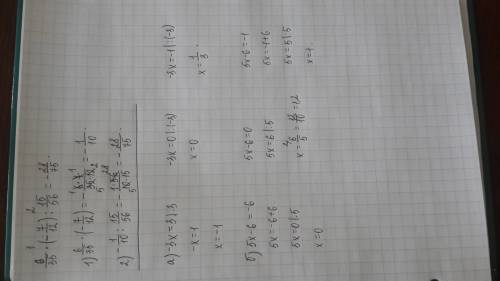 6/35 · (-7/12) : 15/56 = -28/75.
1) 6/35 · (-7/12) = -6·7/35·12 = -1/10
2) -1/10 : 15/56 = -1·56/10·15 = -28/75.
а) -3x=3|:3
-x=1
x=-1
-3x=0|:(-3)
x=0
-3x=-1|:(-3)
x=1/3.
б) 5x-6=-6
5x=-6+6
5x=0|:5
x=0
5x-6=0
5x=6|:5
x=6/5=12/10=12
5x-6=-1
5x=-1+6
5x=5|:5
x=1